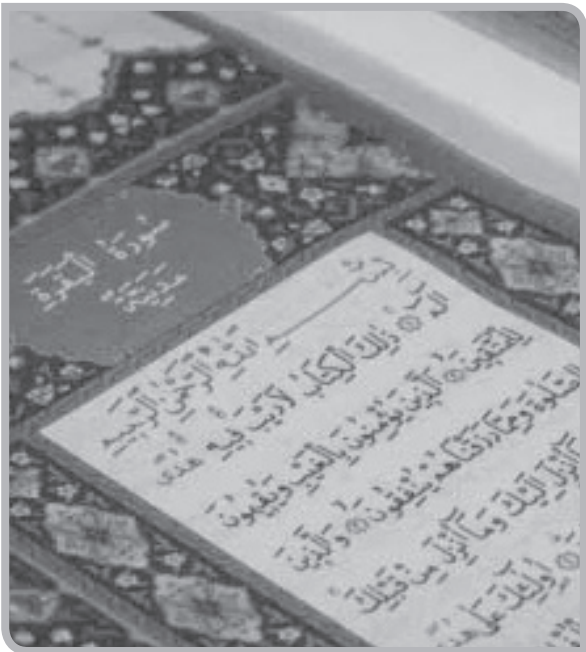 سُورَةُ الْبَقَرَةِ
مَدَنِيَّةٌ
بِسْمِ اللهِ الرَّحْمٰنِ الرَّحِيمِ
الٓمٓ ۝ ذٰلِكَ الْكِتَابُ لَا رَيْبَ فِيهِ هُدًى
لِلْمُتَّقِينَ ۝ الَّذِينَ يُؤْمِنُونَ بِالْغَيْبِ وَيُقِيمُونَ
الصَّلٰوةَ وَمِمَّا رَزَقْنَاهُمْ يُنْفِقُونَ ۝ وَالَّذِينَ
أُنْزِلَ إِلَيْكَ وَمَا أُنْزِلَ مِنْ قَبْلِكَ
أُولٰئِكَ عَلٰى هُدًى